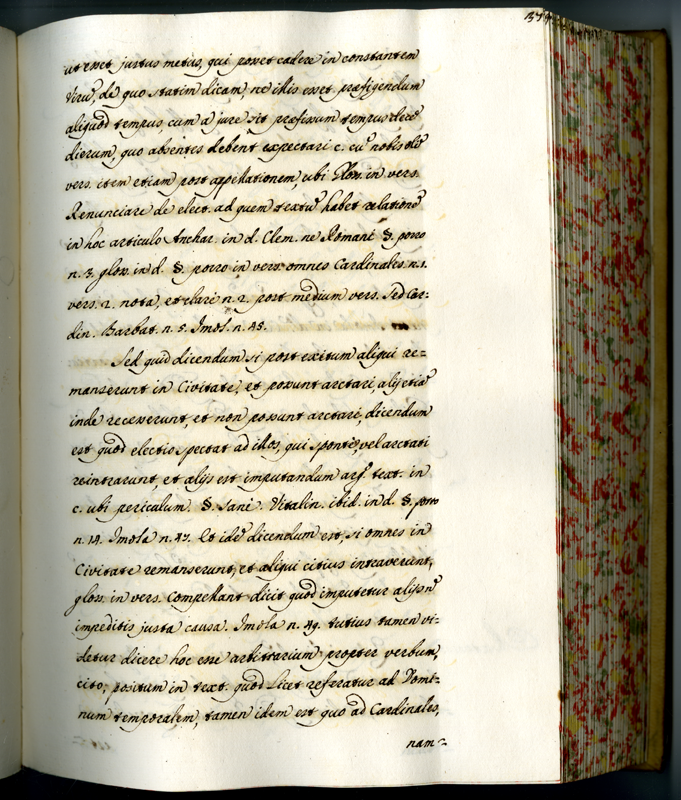 ut esset justus metus, qui posset cadere in constantem
Virũ, de quo statim dicam, ne illis esset præfigendum
aliquod tempus, cum a jure sit præfixum tempus decẽ
dierum, quo absentes debent expectari c. cũ nobis olĩ
vers. item etiam post appellationem, ubi Glos. in vers.
Renunciare de elect. ad quem textũ habet relationẽ
in hoc articulo Anchar. in d. Clem. ne Romani §. porro
n. 3. glos. in d. §. porro in vers. omnes Cardinales n. 1.
vers. 2. nota, et clari n. 2. post medium vers. Sed Car:
din. Barbat. n. 5. Imol. n. 45.
Sed quid dicendum si post exitum aliqui re=
manserunt in Civitate, et possunt arctari, alij etiã
inde recesserunt, et non possunt arctari, dicendum
est quod electio spectat ad illos, qui sponte, vel arctati
reintrarunt, et alijs est imputandum arg. text. in
c. ubi periculum §. sane. Vitalin. ibid. in d. §. porro
n. 14. Imola n. 47. Et idẽ dicendum est, si omnes in
Civitate remanserunt, et aliqui citius intraverunt,
glos. in vers. Compellant dicit quod imputetur alijs nõ
impeditis justa causa. Imola n. 49. tutius tamen vi=
detur dicere hoc esse arbitrarium propter verbum,
cito, positum in text. quod licet referatur ad Domi=
num temporalem, tamen idem est quo ad Cardinales,
nam